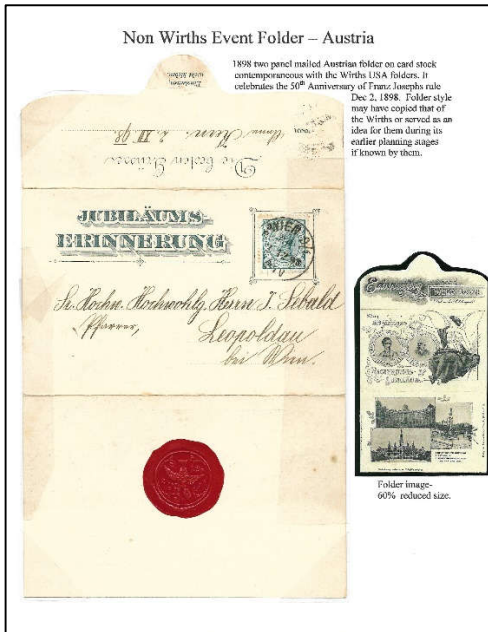 Non Wirths Event Folder – Austria
1898 two panel mailed Austrian folder on card stock
contemporaneous with the Wirths USA folders. It
celebrates the 50th Anniversary of Franz Josephs rule
Dec 2, 1898. Folder style
may have copied that of
the Wirths or served as an
idea for them during its
earlier planning stages
if known by them.
Die besten Grüsse
2. XII 98
JUBILÄUMS-
ERINNERUNG
WIEN
Sr. Hochw. Hochwohlg. Herrn J. Sebald
Pfarrer,
Leopoldau
bei Wien.
Folder image-
60% reduced size.